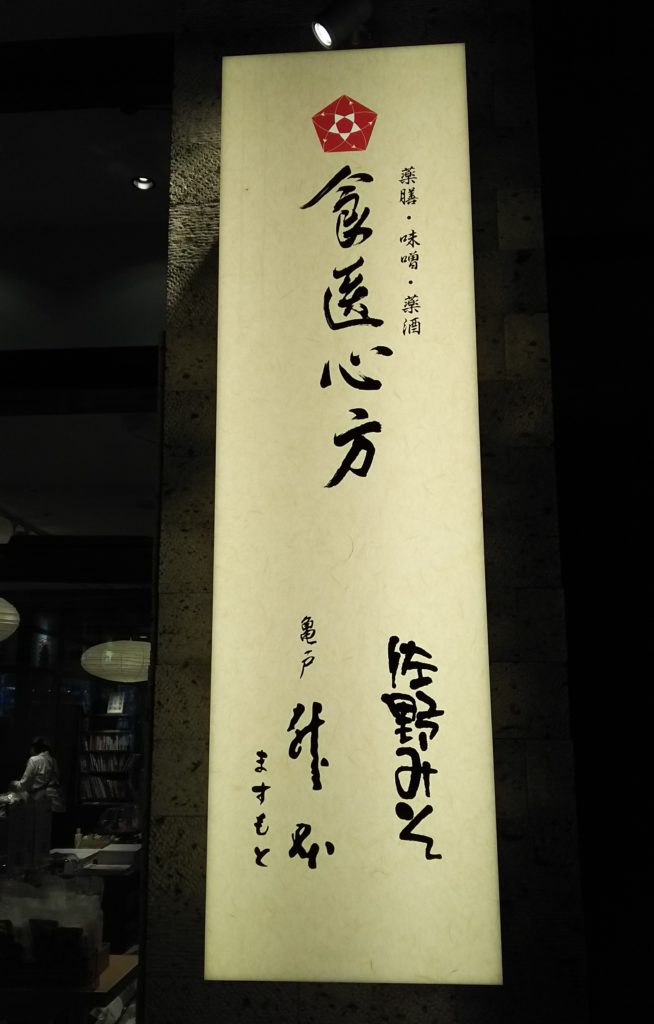 薬膳・味噌・薬酒
食医心方
佐野みそ
亀戸
升本
ますもと